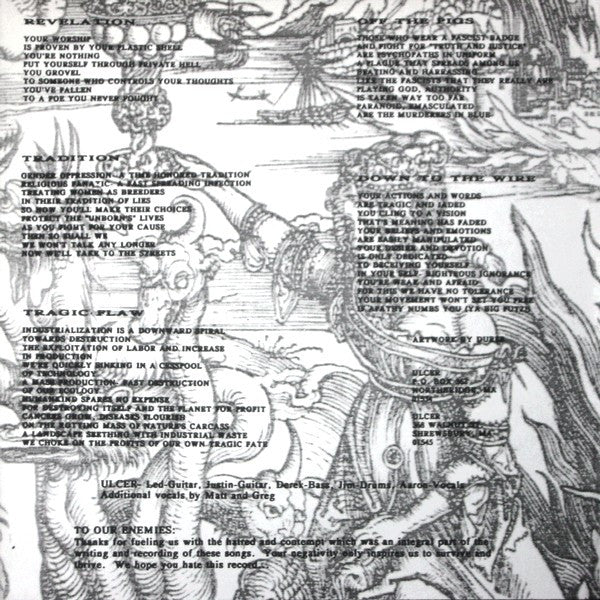 REVELATION
YOUR WORSHIP
IS PROVEN BY YOUR PLASTIC SHELL
YOU'RE NOTHING
PUT YOURSELF THROUGH PRIVATE HELL
YOU GROVEL
TO SOMEONE WHO CONTROLS YOUR THOUGHTS
YOU'VE FALLEN
TO A FOE YOU NEVER FOUGHT
TRADITION
GENDER OPPRESSION- A TIME HONORED TRADITION
RELIGIOUS FANATIC- A FAST SPREADING INFECTION
TREATING WOMEN AS BREEDERS
IN THEIR TRADITION OF LIES
SO NOW YOU'LL MAKE THEIR CHOICES
PROTECT THE "UNBORNS" LIVES
AS YOU FIGHT FOR YOUR CAUSE
THEN SO SHALL WE
WE WON'T TALK ANY LONGER
NOW WE'LL TAKE TO THE STREETS
TRAGIC FLAW
INDUSTRIALIZATION IS A DOWNWARD SPIRAL
TOWARDS DESTRUCTION
THE EXPLOITATION OF LABOR AND INCREASE
IN PRODUCTION
WE'RE QUICKLY SINKING IN A CESSPOOL
OF TECHNOLOGY
A MASS PRODUCTION- FAST DESTRUCTION
OF OUR ECOLOGY
HUMANKIND SPARES NO EXPENSE
FOR DESTROYING ITSELF AND THE PLANET FOR PROFIT
CANCERS GROW, DISEASES FLOURISH
ON THE ROTTING MASS OF NATURE'S CARCASS
A LANDSCAPE SEETHING WITH INDUSTRIAL WASTE
WE CHOKE ON THE PROFITS OF OUR OWN TRAGIC FATE
OFF THE PIGS
THOSE WHO WEAR A FASCIST BADGE
AND FIGHT FOR "TRUTH AND JUSTICE"
ARE PSYCHOPATHS IN UNIFORM
A PLAGUE THAT SPREADS AMONG US
BEATING AND HARRASSING
LIKE THE FASCISTS THAT THEY REALLY ARE
PLAYING GOD, AUTHORITY
IS TAKEN WAY TOO FAR
PARANOID, EMASCULATED
ARE THE MURDERERS IN BLUE
DOWN TO THE WIRE
YOUR ACTIONS AND WORDS
ARE TRAGIC AND JADED
YOU CLING TO A VISION
THAT'S MEANING HAS FADED
YOUR BELIEFS AND EMOTIONS
ARE EASILY MANIPULATED
YOUR DESIRE AND DEVOTION
IS ONLY DEDICATED
TO DECEIVING YOURSELF
IN YOUR SELF- RIGHTEOUS IGNORANCE
YOU'RE WEAK AND AFRAID
FOR THIS WE HAVE NO TOLERANCE
YOUR MOVEMENT WON'T SET YOU FREE
IF APATHY NUMBS YOU (YA BIG PUTZ)
ARTWORK BY DURER
ULCER
P.O. BOX
NORTHBRIDGE, MA
ULCER
WALNUT ST.
SHREWSBURY, MA
01545
ULCER- Led-Guitar, Justin-Guitar, Derek-Bass, Jim-Drums, Aaron-Vocals
Additional vocals by Matt and Greg
TO OUR ENEMIES:
Thanks for fueling us with the hatred and contempt which was an integral part of the
writing and recording of these songs. Your negativity only inspires us to survive and
thrive. We hope you hate this record.